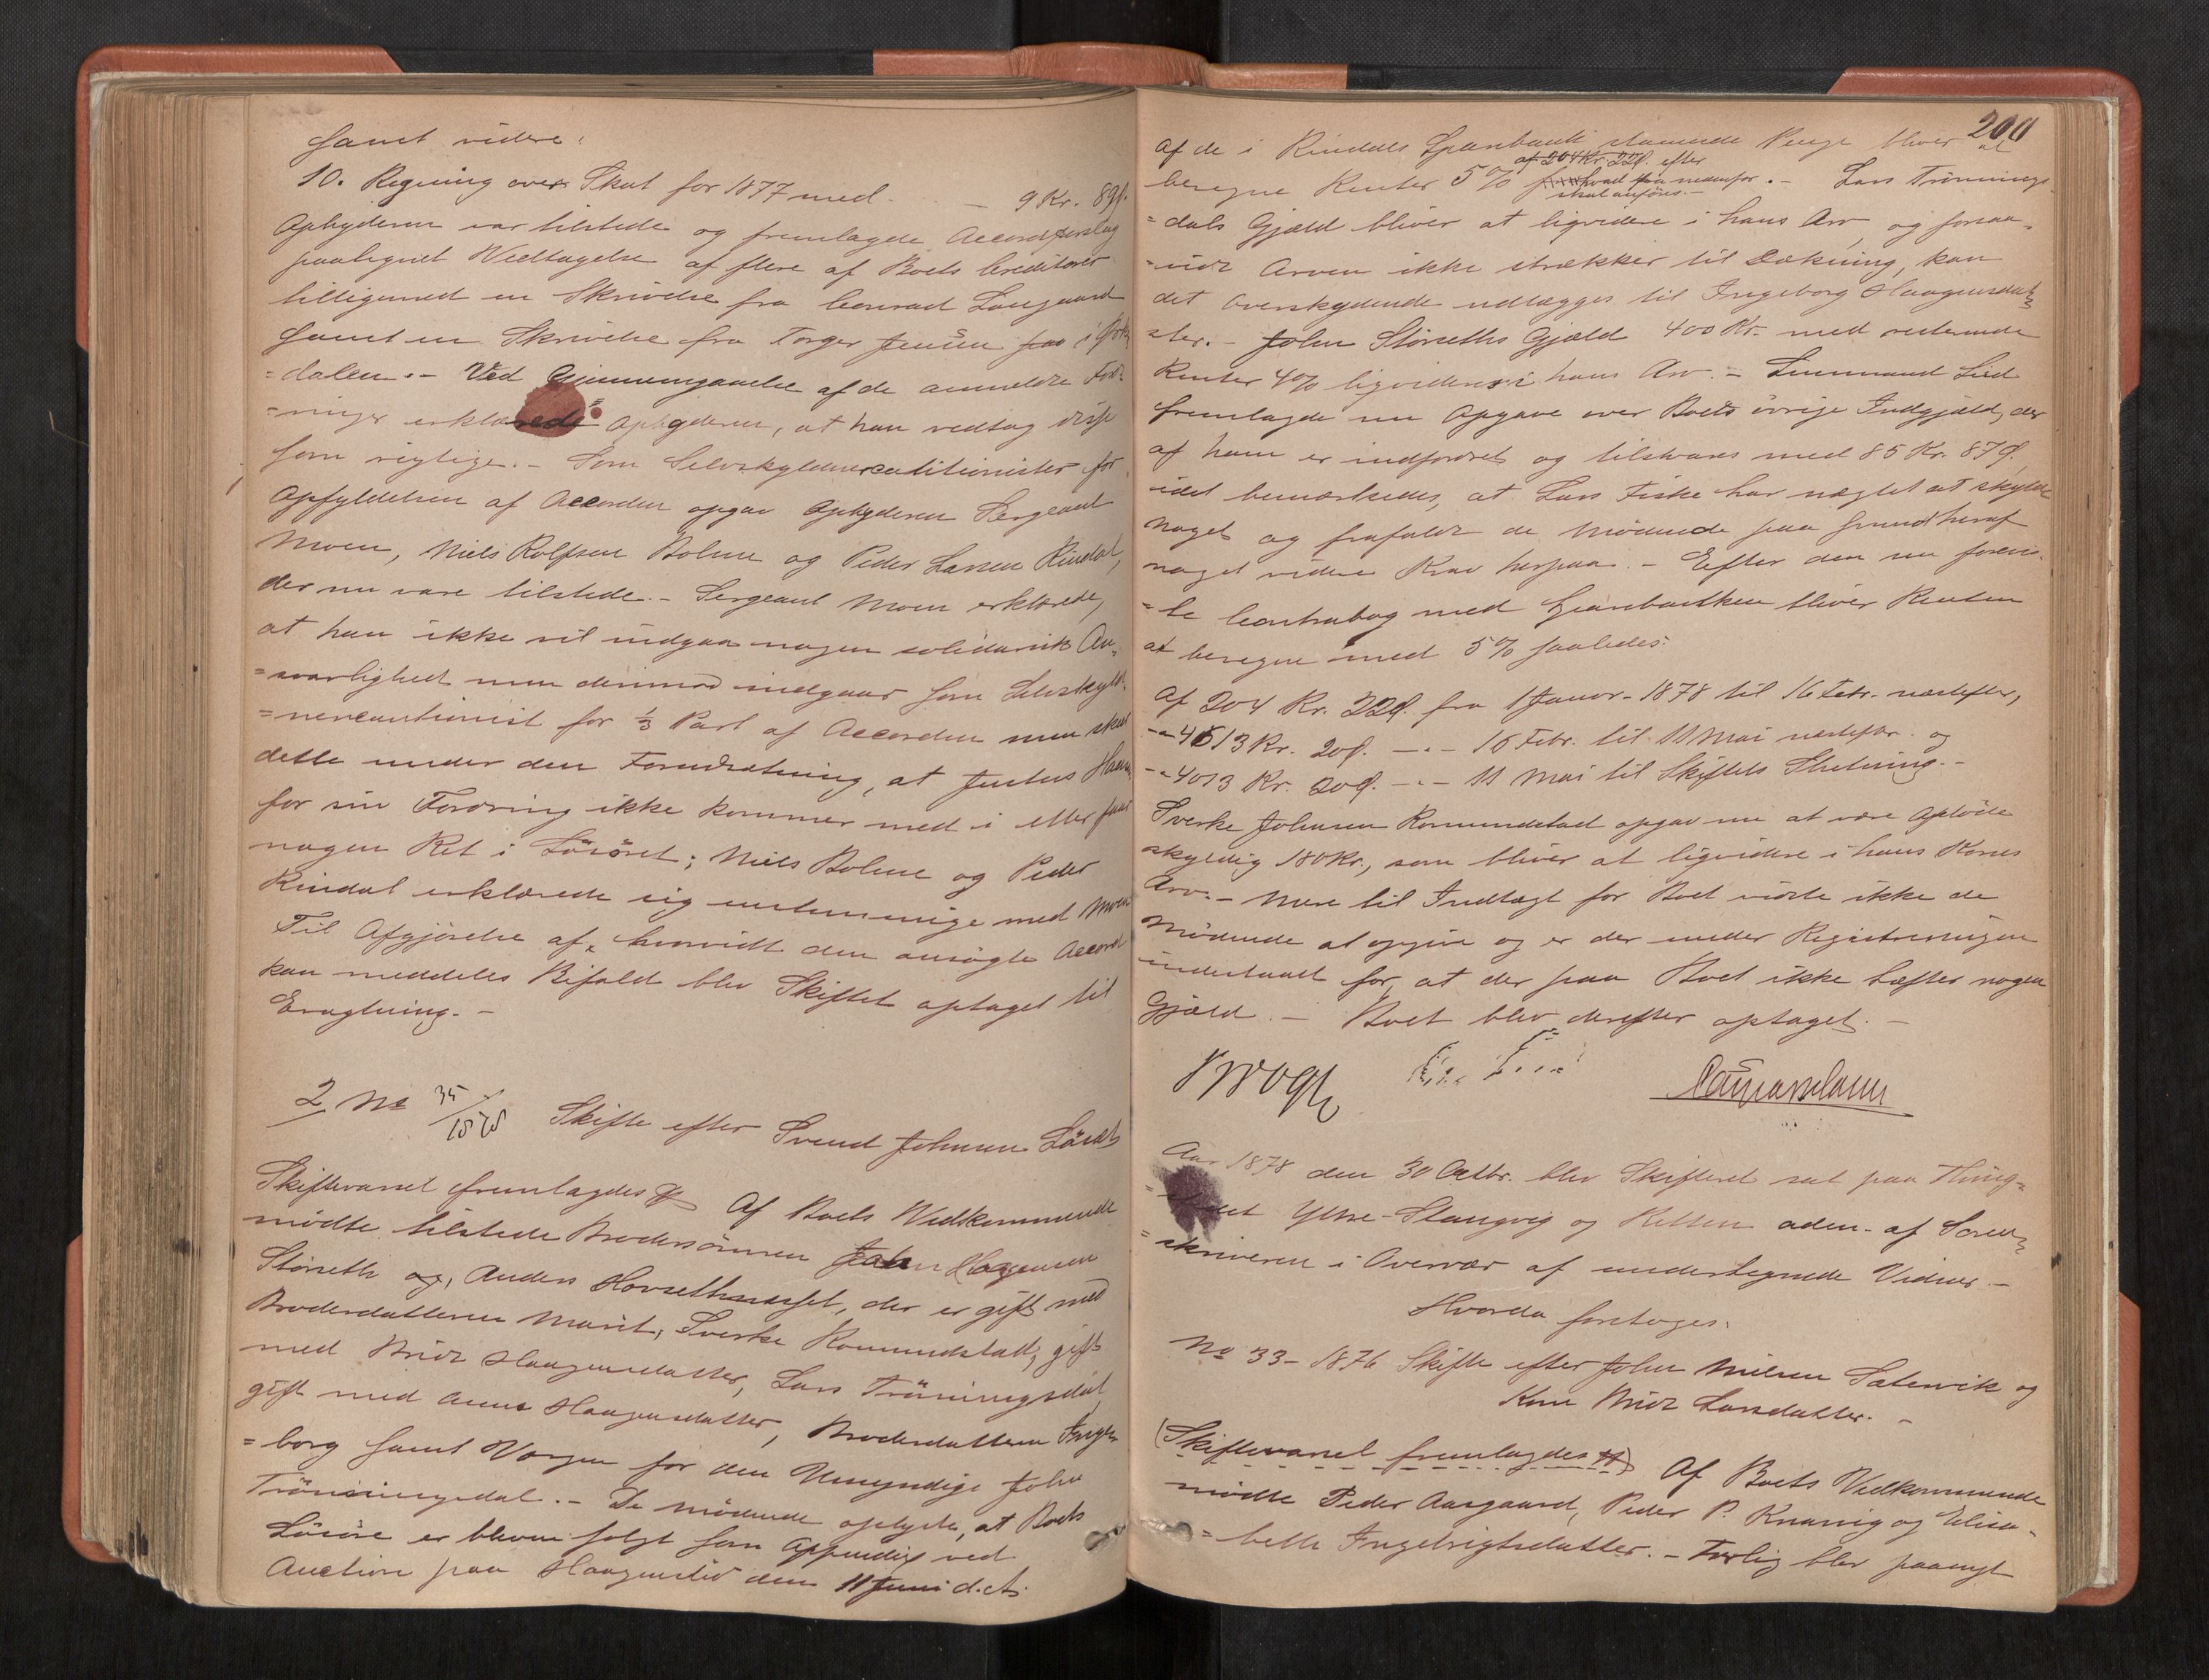 samt videre:
10. Regning over Skat for 1877 med - 9 Kr. 89 ø.
Opbyderen var tilstede og fremlagde Accordforslag
paategnet Vedtagelse af flere af Boets Creditorer
tilligemed en Skrivelse fra Conrad Langaard
samt en Skrivelse fra Torger Jensen i Ork
=dalen. - Ved Gjennemgaaelse af de anmeldte Ford-
=ringer erklærede Opbyderen, at han vedtog disse
som rigtige. - Som Selvskyldnercautionister for
Opfyldelsen af Accorden opgav Opbyderen Sergeant
Moen, Niels Rolfsen Bolme og Peder Larsen Rindal,
der nu vare tilstede. - Sergeant Moen erklærede,
at han ikke vil indgaa nogen solidarisk An-
=svarlighed men derimod indgaar som Selvskyld-
=nercautionist for 1/3 Part af Accorden men skeer
dette under den Forudsætning, at Justus
for sin Fordring ikke kommer med i eller faar
nogen Ret i Løsøret; Niels Bolme og Peder
Rindal erklærede sig enstemmige med Moen
Til Afgjørelse af, hvorvidt den ansøgte Accord
kan meddeles Bifald blev Skiftet optaget til
Eragtning. -
2 No 35/1878 Skifte efter Svend Johnsen Løset
Skiftevarsel fremlagdes Af Boets Vedkommende
mødte tilstede Brodersønnen John Haagensen
Størseth og, Anders Hovsethaasset, der er gift med
Broderdatteren Marit, Sverke Romundstad, gift
med Brit Haagensdatter, Lars Trønningsdal,
gift med Anne Haagensdatter, Broderdatteren Inge-
=borg samt Vergen for den Umyndige John
Trønningsdal. - De mødende oplyste, at Boets
Løsøre er bleven solgt som Appendix ved
Auction paa Haagenslid den 11 Juni d. A.
200
Af de i Rindals Sparebank staaende Penge bliver at
af 204 Kr. 22 ø. efter
beregne Renter 5 % hvad nedenfor. - Lars Trønnings-
skal anføres. -
=dals Gjæld bliver at liqvidere i hans Arv, og forsaa-
=vidt Arven ikke strækker til Dækning, kan
det overskydende udlægges til Ingeborg Haagensdat-
=ter. - John Størseths Gjæld 400 Kr. med resterende
Renter 4 % liqvideres i hans Arv. - Lensmand Lied
fremlagde nu Opgave over Boets øvrige Indgjæld, der
af ham er indfordret og tilsvares med 85 Kr. 87 ø,
idet bemærkedes, at Lars Fiske har nægtet at skylde
noget og frafaldt de Mødende paa Grund heraf
noget videre Krav herpaa. - Efter den nu forevi-
=te Contrabog med Sparebanken bliver Renten
at beregne med 5 % saaledes:
Af 204 Kr. 22 ø. fra 1 Januar 1878 til 16 Febr. næstefter,
- 4513 Kr. 20 ø. - - 16 Febr. til 11 Mai næstefter og
- 4013 Kr. 20 ø. - - 11 Mai til Skiftets Slutning. -
Sverke Johnsen Romundstad opgav nu at være Afdøde
skyldig 180 Kr., som bliver at liqvidere i hans Kones
Arv. - Mere til Indtægt for Boet vidste ikke de
Mødende at opgive og er der under Registreringen
indestaaet for, at der paa Boet ikke hæfter nogen
Gjæld. - Boet blev derefter optaget. -
Aar 1878 den 30 Octbr. blev Skifteret sat paa Thing-
=stedet Ytre-Stangvig og Retten adm. af Soren-
=skriveren i Overvær af undertegnede Vidner. -
Hvorda foretoges:
No 33 - 1876 Skifte efter John Nielsen Sætervik og
Kone Brit Larsdatter. -
(Skiftevarsel fremlagdes) Af Boets Vedkommende
mødte Peder Aasgaard, Peder P. Kvanvig og Elisa-
=beth Ingebrigtsdatter. - Forlig blev paanyt